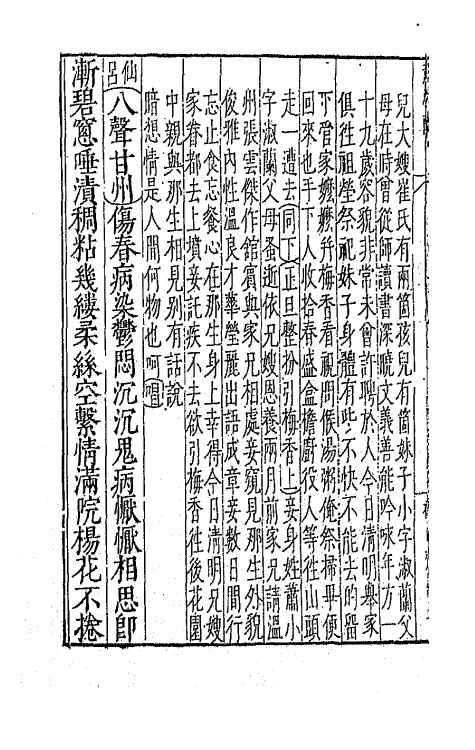 兒大嫂崔氏有兩箇孩兒有箇妹子小字淑蘭父
母在時曾從師讀書深曉文義善能吟咏年方一
十九歲容貌非常未曾許聘於人今日清明舉家
俱徃祖塋祭祀妹子身體有些不快不能去的留
下管家嬷嬷幷梅香看視問候湯粥俺祭掃畢便
回來也手下人收拾春盛盒擔廚役人等徃山頭
走一遭去同下正旦整扮引梅香上妾身姓蕭小
字淑蘭父母蚤逝依兄嫂恩養兩月前家兄請溫
州張雲傑作館賓與家兄相處妾窺見那生外貌
俊雅內性溫良才華瑩麗出語成章妾數日間行
忘止食忘餐心在那生身上幸得今日清明兄嫂
家眷都去上墳妾託疾不去欲引梅香徃後花園
中親與那生相見別有話說
暗想情是人間何物也呵唱
仙呂
八聲甘州傷春病染鬱悶沉沉鬼病懨懨相思卽
漸碧窓唾漬稠粘幾縷柔絲空繫情滿院楊花不捲